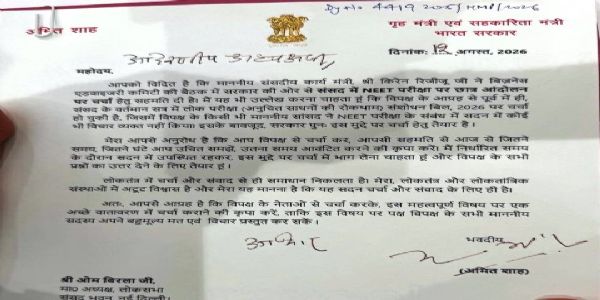 Dy No 4419 2026/HMP/2026
अमित शाह
गृह मंत्री एवं सहकारिता मंत्री
भारत सरकार
दिनांक: 12 अगस्त, 2026
आदरणीय अध्यक्ष जी
महोदय,
आपको विदित है कि माननीय संसदीय कार्य मंत्री, श्री किरेन रिजीजू जी ने बिज़नेस
एडवाइजरी कमिटी की बैठक में सरकार की ओर से संसद में NEET परीक्षा पर छात्र आंदोलन
पर चर्चा हेतु सहमति दी है। मैं यह भी उल्लेख करना चाहता हूँ कि विपक्ष के आग्रह से पूर्व में ही,
संसद के वर्तमान सत्र में लोक परीक्षा (अनुचित साधनों की रोकथाम) संशोधन बिल, 2026 पर चर्चा
हो चुकी है, जिसमें विपक्ष के किसी भी माननीय सांसद ने NEET परीक्षा के संबंध में सदन में कोई
भी विचार व्यक्त नहीं किया। इसके बावजूद, सरकार पुनः इस मुद्दे पर चर्चा हेतु तैयार है।
मेरा आपसे अनुरोध है कि आप विपक्ष से चर्चा कर, आपकी सहमति से आज से जितने
समय, जितने घंटे आप उचित समझें, उतना समय आवंटित करने की कृपा करें। मैं निर्धारित समय
के दौरान सदन में उपस्थित रहकर, इस मुद्दे पर चर्चा में भाग लेना चाहता हूँ और विपक्ष के सभी
प्रश्नों का उत्तर देने के लिए तैयार हूँ।
लोकतंत्र में चर्चा और संवाद से ही समाधान निकलता है। मेरा, लोकतंत्र और लोकतांत्रिक
संस्थाओं में अटूट विश्वास है और मेरा यह मानना है कि यह सदन चर्चा और संवाद के लिए ही है।
अतः, आपसे आग्रह है कि विपक्ष के नेताओं से चर्चा करके, इस महत्वपूर्ण विषय पर एक
अच्छे वातावरण में चर्चा कराने की कृपा करें, ताकि इस विषय पर पक्ष विपक्ष के सभी माननीय
सदस्य अपने बहुमूल्य मत एवं विचार प्रस्तुत कर सकें।
सादर
भवदीय
(अमित शाह)
श्री ओम बिरला जी,
मा० अध्यक्ष, लोकसभा
संसद भवन नई दिल्ली।